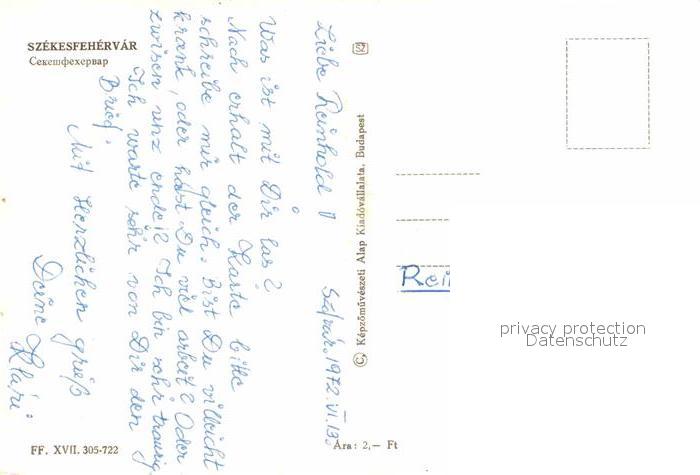 SZÉKESFEHÉRVÁR
Секешфехервар
Liebe Reinhold!
Szfvár. 1972. VI. 13.
Was ist mit Dir las?
Nach erhalt der Karte bitte
schreibe mir gleich. Bist Du villeicht
krank, oder hast Du viel arbeit? Oder
zwisen unz ende!? Ich bin sehr traurig
Ich warte sehr von Dir den
Brief.
Mit Herzlichen grieß
Deine Klári.
Képzőművészeti Alap Kiadóvállalata, Budapest
Rei
privacy protection
Datenschutz
FF. XVII. 305-722
Ára: 2,— Ft